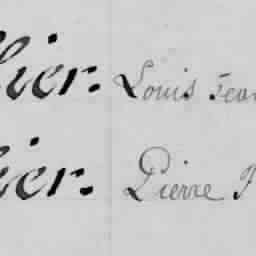 hier. Louis Jean
hier. Pierre